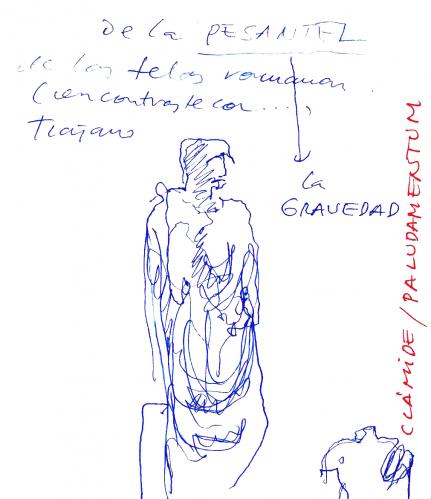 de la PESANTEZ
de las telas romanas
(en contraste con ...,
Trajano
la
GRAVEDAD
CLÁMIDE / PALUDAMENTUM